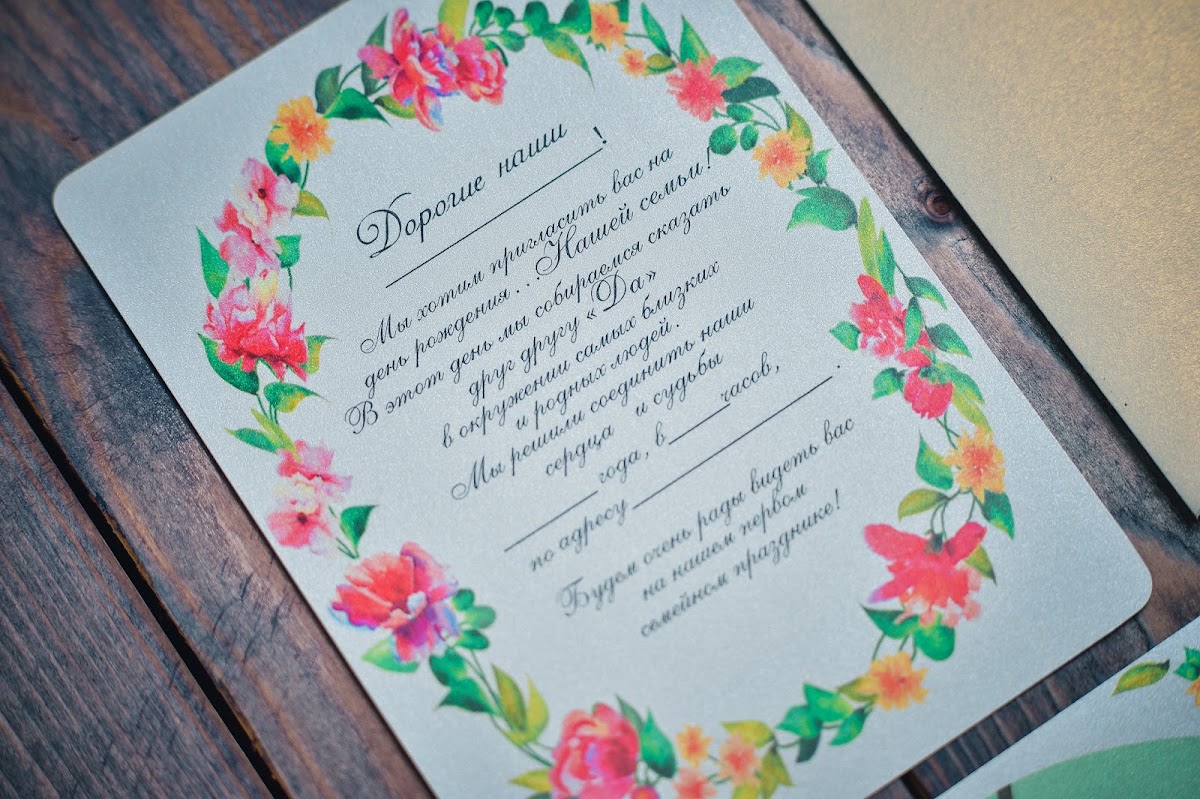 Дорогие наши
!
Мы хотим пригласить вас на
день рождения . . . Нашей семьи!
В этот день мы собираемся сказать
друг другу «Да»
в окружении самых близких
и родных людей.
Мы решили соединить наши
сердца и судьбы
года, в часов,
по адресу .
Будем очень рады видеть вас
на нашем первом
семейном празднике!